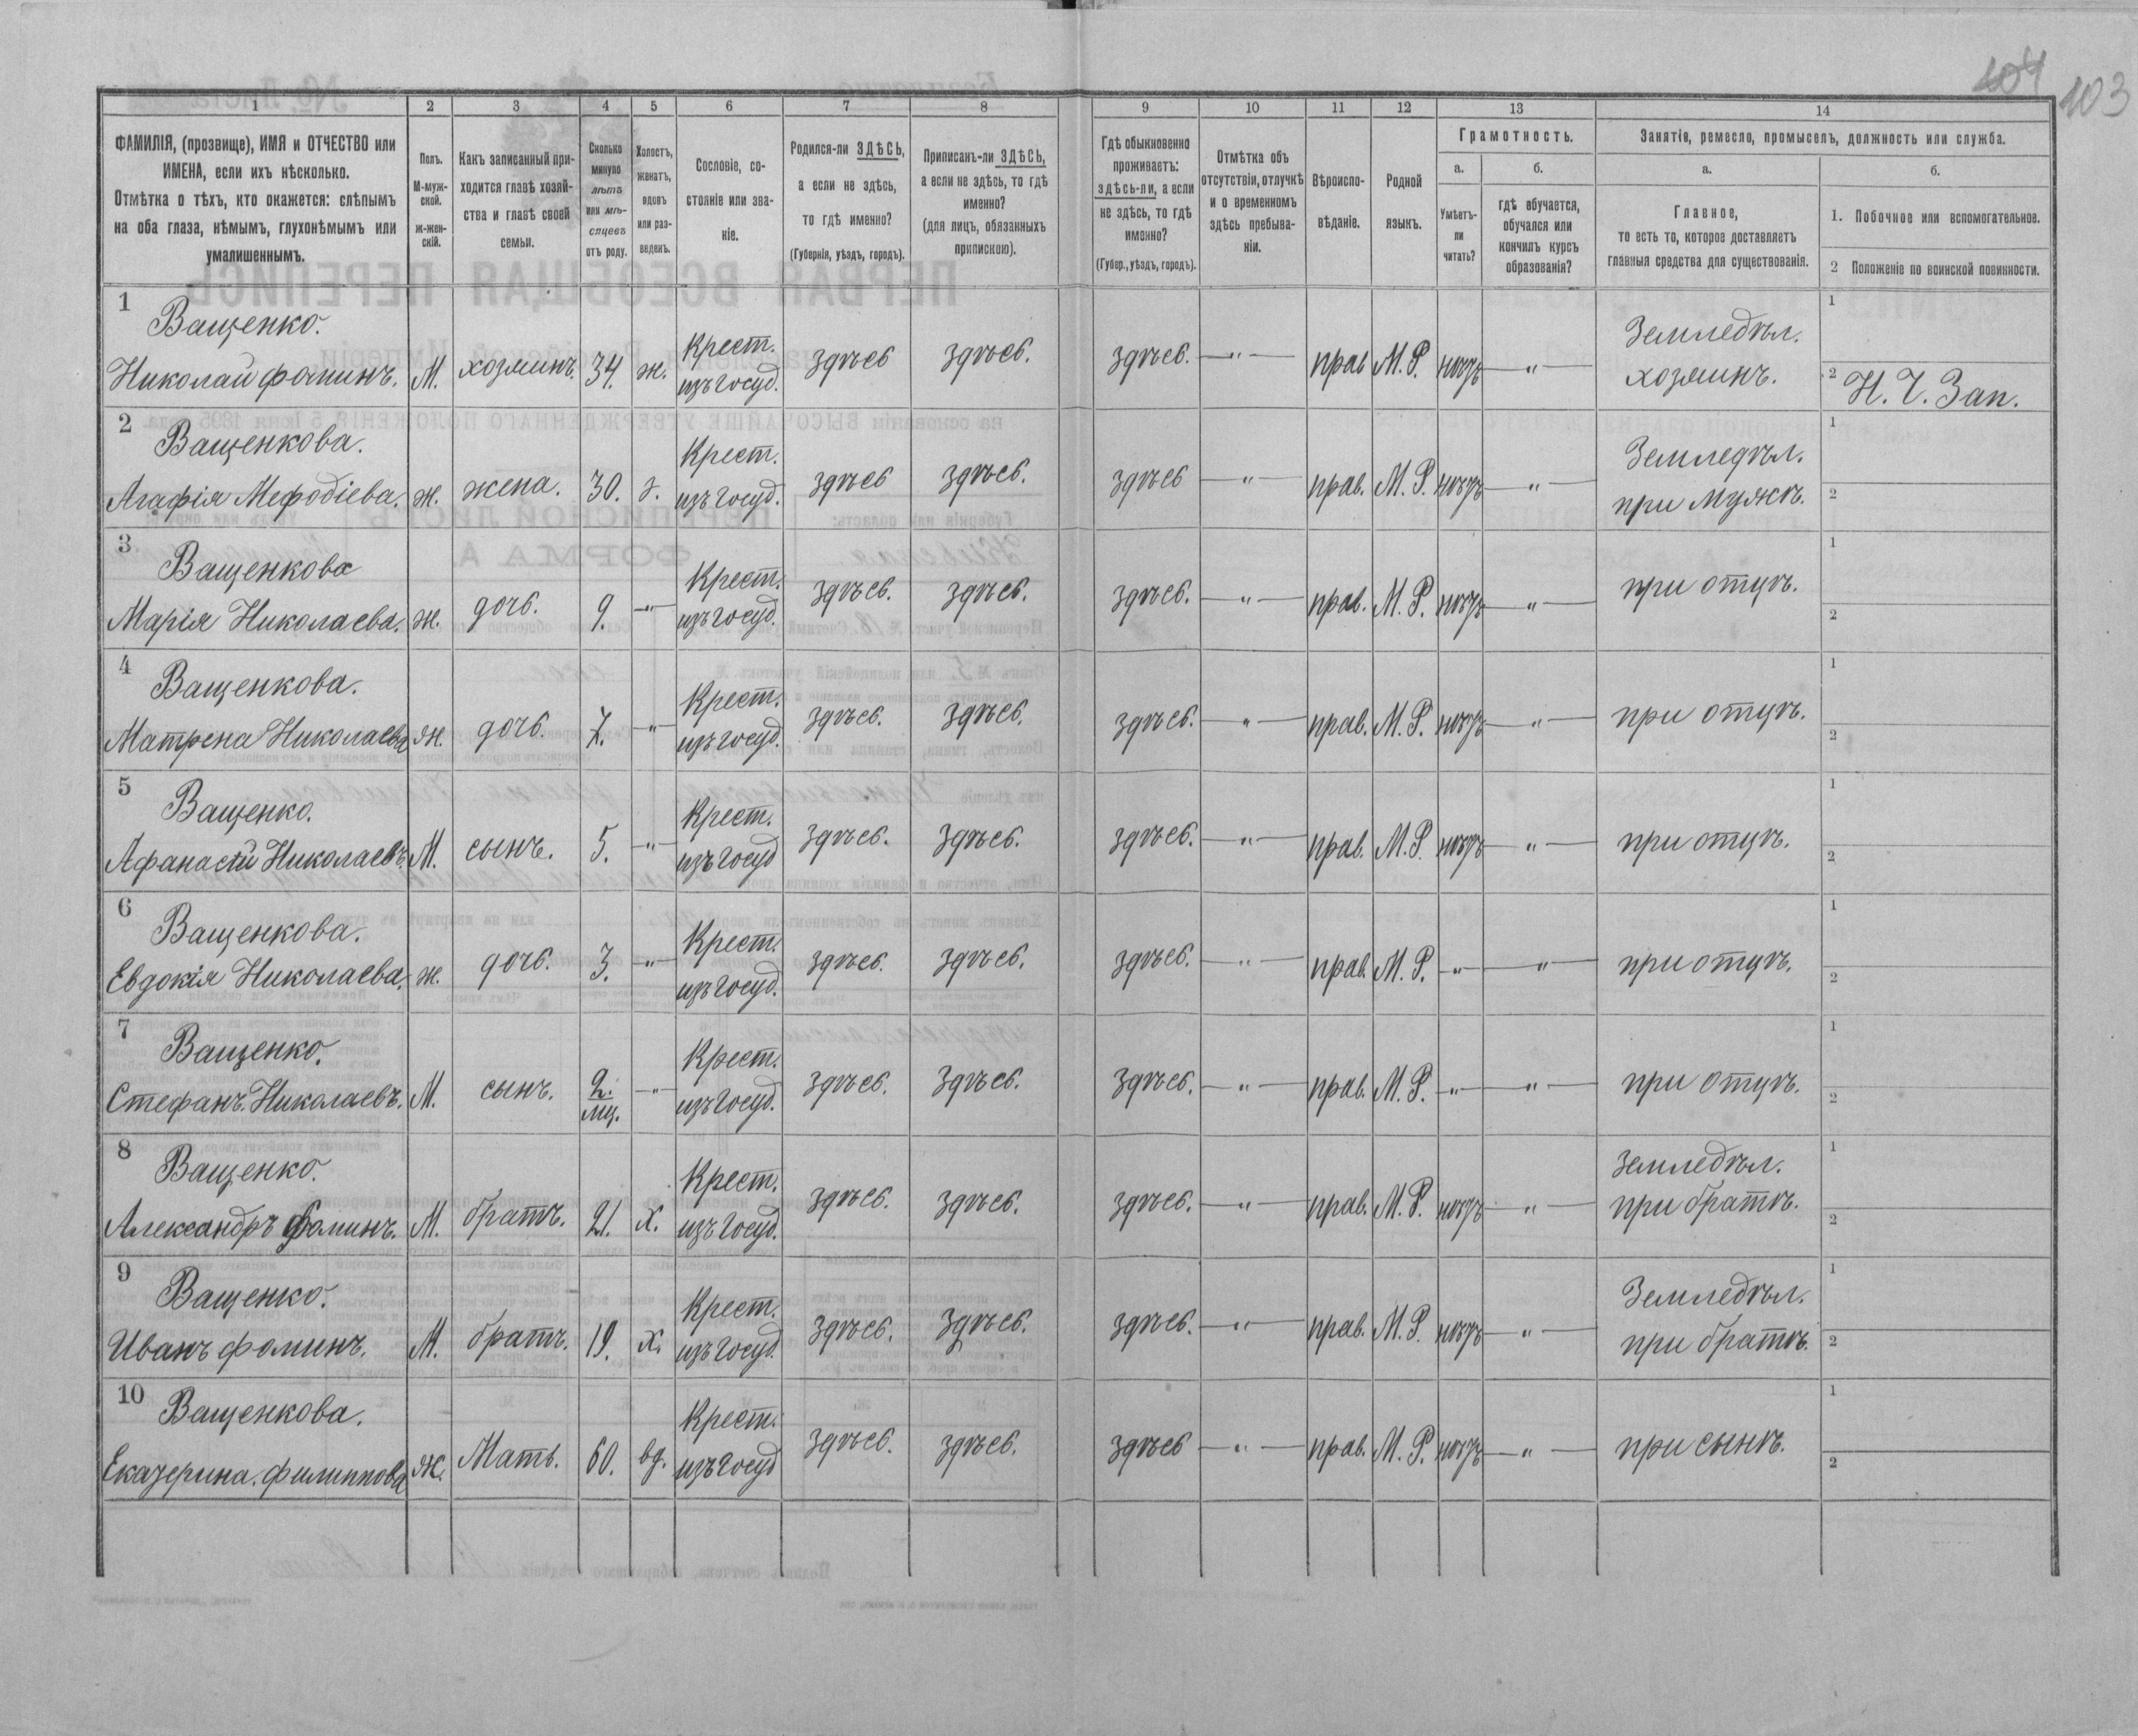 104 103
1 2 3 4 5 6 7 8 9 10 11 12 13 14
ФАМИЛІЯ, (прозвище), ИМЯ и ОТЧЕСТВО или
ИМЕНА, если ихъ нѣсколько.
Отмѣтка о тѣхъ, кто окажется: слѣпымъ
на оба глаза, нѣмымъ, глухонѣмымъ или
умалишеннымъ.
Полъ.
М-муж-
ской.
ж-жен-
скій.
Какъ записанный при-
ходится главѣ хозяй-
ства и главѣ своей
семьи.
Сколько
минуло
лѣтъ
или мѣ-
сяцевъ
отъ роду.
Холостъ,
женатъ,
вдовъ
или раз-
веденъ.
Сословіе, со-
стояніе или зва-
ніе.
Родился-ли ЗДѢСЬ,
а если не здѣсь,
то гдѣ именно?
(Губернія, уѣздъ, городъ).
Приписанъ-ли ЗДѢСЬ,
а если не здѣсь, то гдѣ
именно?
(для лицъ, обязанныхъ
припискою).
Гдѣ обыкновенно
проживаетъ:
здѣсь-ли, а если
не здѣсь, то гдѣ
именно?
(Губер., уѣздъ, городъ).
Отмѣтка объ
отсутствіи, отлучкѣ
и о временномъ
здѣсь пребыва-
ніи.
Вѣроиспо-
вѣданіе.
Родной
языкъ.
Грамотность.
а. б.
Умѣетъ-
ли
читать?
гдѣ обучается,
обучался или
кончилъ курсъ
образованія?
Занятіе, ремесло, промыселъ, должность или служба.
а. б.
Главное,
то есть то, которое доставляетъ
главныя средства для существованія.
1. Побочное или вспомогательное.
2 Положеніе по воинской повинности.
1 Ващенко. Крест. Земледѣл. 1
Николай Фоминъ. М. хозяинъ. 34. ж. изъ госуд. здѣсь здѣсь. здѣсь. —"— прав М. Р. нѣтъ —"— хозяинъ. 2 Н. Ч. Зап.
2 Ващенкова. Крест. Земледѣл. 1
Агафія Мефодіева. ж. жена. 30. з. изъ госуд. здѣсь здѣсь. здѣсь —"— прав. М. Р. нѣтъ —"— при мужѣ. 2
3 Ващенкова Крест. 1
Марія Николаева. ж. дочь. 9. —"— изъ госуд. здѣсь. здѣсь. здѣсь. —"— прав. М. Р. нѣтъ —"— при отцѣ. 2
4 Ващенкова. Крест. 1
Матрена Николаева ж. дочь. 7. —"— изъ госуд. здѣсь. здѣсь. здѣсь. —"— прав. М. Р. нѣтъ —"— при отцѣ. 2
5 Ващенко. Крест. 1
Афанасій Николаевъ. М. сынъ. 5. —"— изъ госуд здѣсь. здѣсь. здѣсь. —"— прав. М. Р. нѣтъ —"— при отцѣ. 2
6 Ващенкова. Крест. 1
Евдокія Николаева. ж. дочь. 3. —"— изъ госуд. здѣсь. здѣсь. здѣсь. —"— прав. М. Р. —"— —"— при отцѣ. 2
7 Ващенко. Крест. 1
Стефанъ Николаевъ. М. сынъ. 2. мц. —"— изъ госуд. здѣсь. здѣсь. здѣсь. —"— прав. М. Р. —"— —"— при отцѣ. 2
8 Ващенко. Крест. Земледѣл. 1
Александръ Фоминъ. М. братъ. 21. х. изъ госуд. здѣсь. здѣсь. здѣсь. —"— прав. М. Р. нѣтъ —"— при братѣ. 2
9 Ващенко. Крест. Земледѣл. 1
Иванъ Фоминъ. М. братъ. 19. х. изъ госуд. здѣсь. здѣсь. здѣсь. —"— прав. М. Р. нѣтъ —"— при братѣ. 2
10 Ващенкова. Крест. 1
Екатерина. Филиппова ж. Мать. 60. вд. изъ госуд здѣсь. здѣсь. здѣсь —"— прав. М. Р. нѣтъ —"— при сынѣ. 2